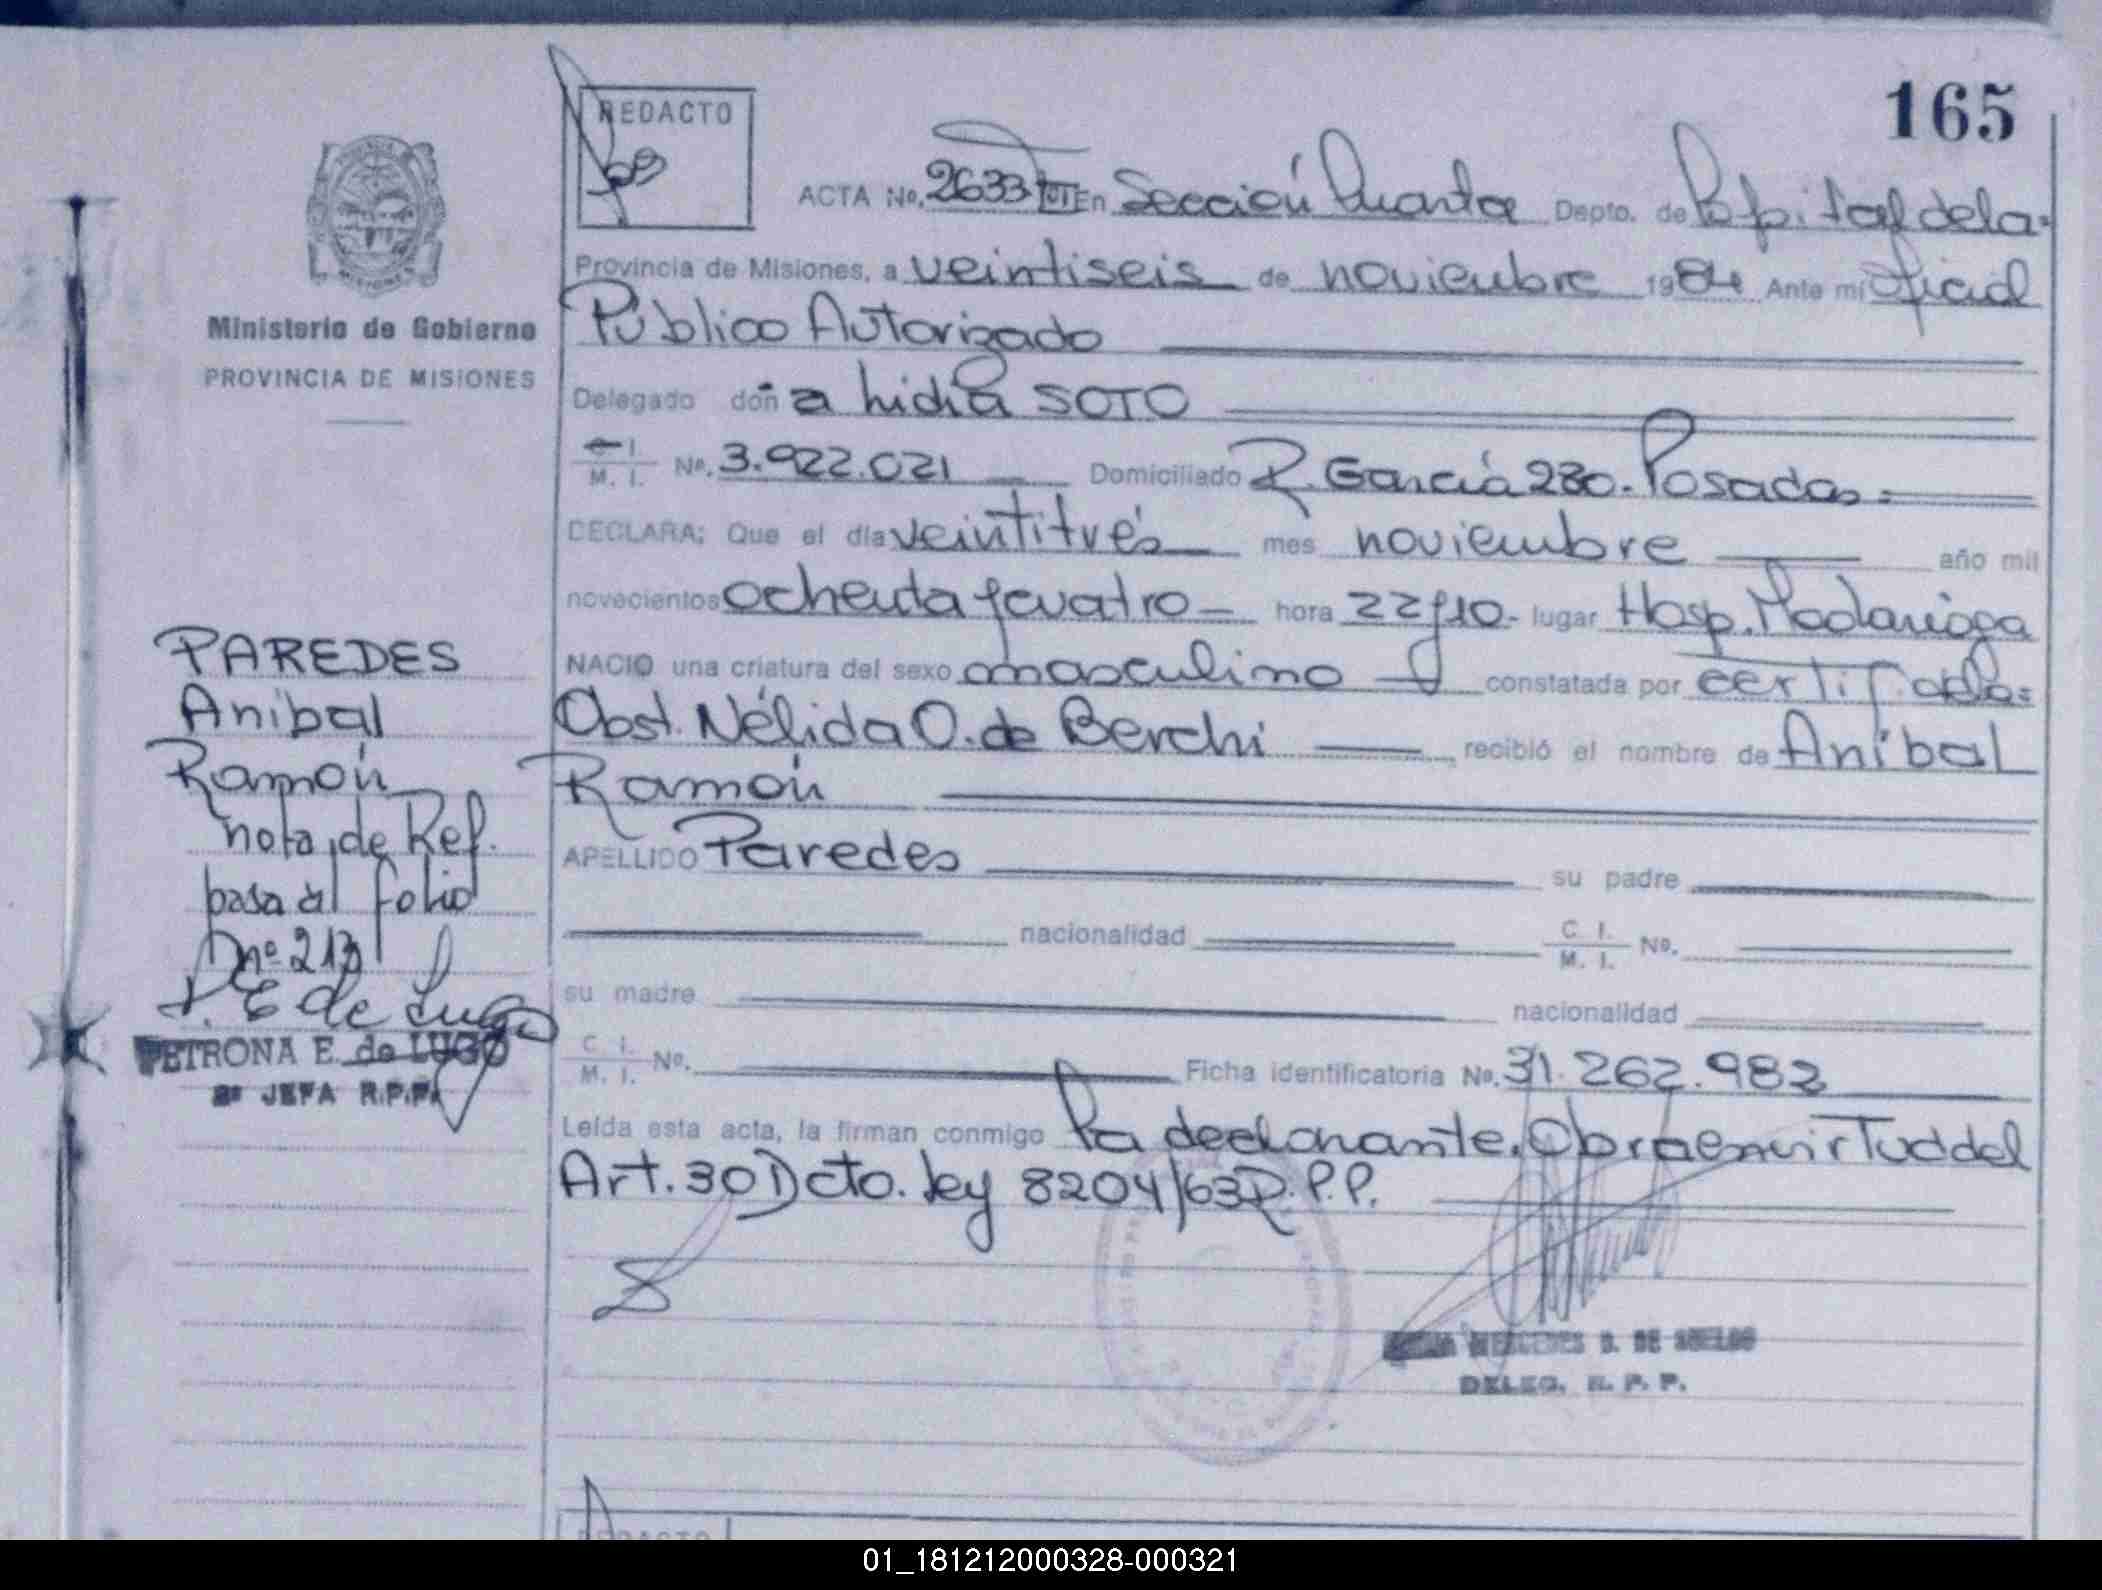 165
REDACTO
ACTA No. 2633 En Sección Cuarta Depto. de Capital dela
Provincia de Misiones, a veintiseis de noviembre 1984 Ante mí Oficial
Público Autorizado
Delegado don a Lidia SOTO
C. I. M. I. No. 3.922.021 Domiciliado R. García 280. Posadas.
DECLARA: Que el día veintitrés mes noviembre año mil
novecientos ochenta y cuatro hora 22 y 10. lugar Hosp. Madariaga
NACIO una criatura del sexo masculino constatada por certif. de la
Obst. Nélida O. de Berchi recibió el nombre de Aníbal
Ramón
APELLIDO Paredes su padre
nacionalidad C. I. M. I. No.
su madre nacionalidad
C. I. M. I. No. Ficha identificatoria No. 31.262.982
Leída esta acta, la firman conmigo la declarante. Obra en virtud del
Art. 30 Dcto. Ley 8204/63 R.P.P.
MERCEDES
DELEG. R. P. P.
Ministerio de Gobierno
PROVINCIA DE MISIONES
PAREDES
Anibal
Ramón
nota de Ref.
pasa al folio
nº 213
P. E de Lugo
PETRONA E. de LUGO
2ª JEFA R.P.P.
REDACTO
01_181212000328-000321